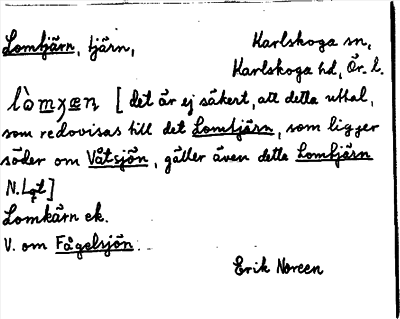 Lomtjärn, tjärn, Karlskoga sn,
Karlskoga hd, Ör. l.
[det är ej säkert, att detta uttal,
som redovisas till det Lomtjärn, som ligger
söder om Våtsjön, gäller även detta Lomtjärn
N. Lgt]
Lomkärn ek.
V. om Fågelsjön.
Erik Noreen